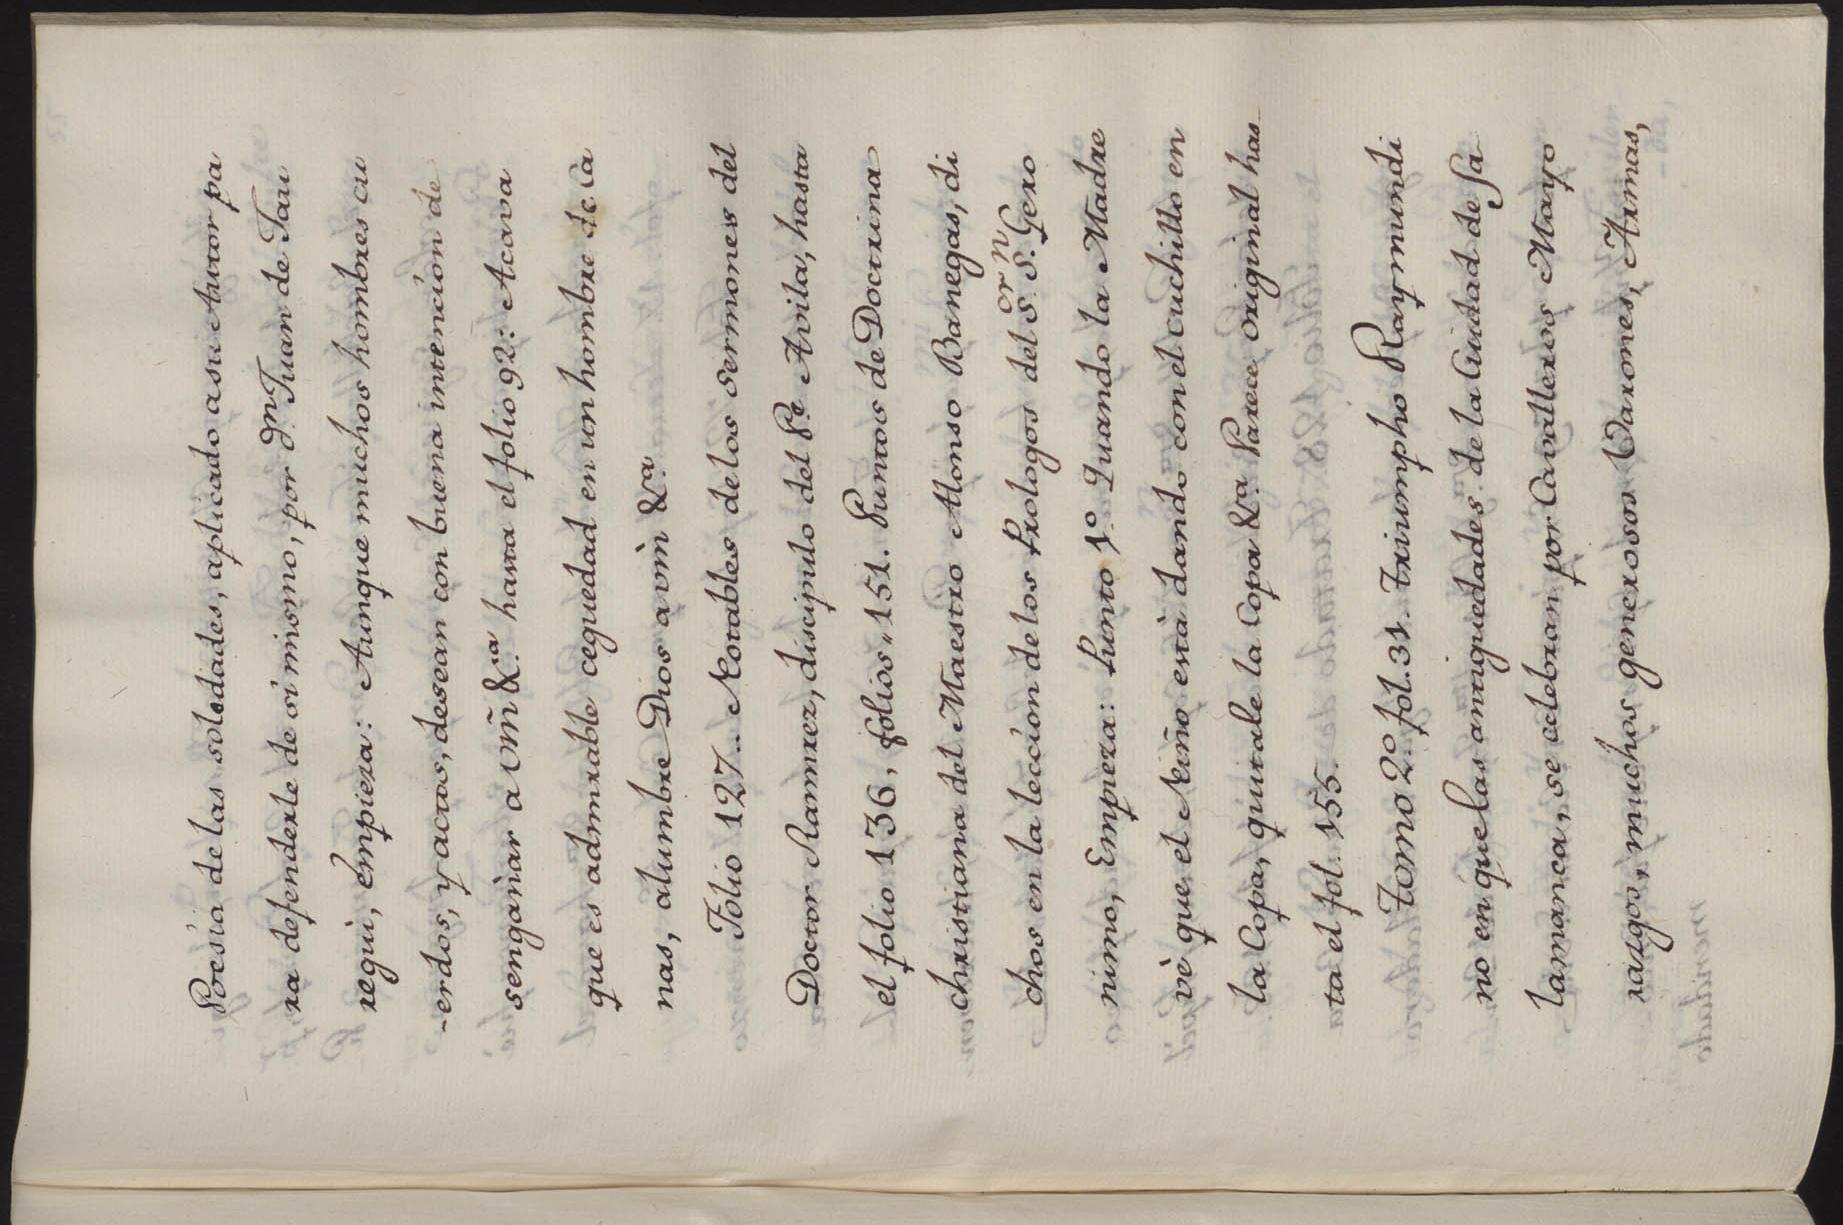 Poesia de las soledades, aplicado a su Autor pa
ra defenderle de si mismo, por Dn. Juan de Jau
regui, empieza: Aunque muchos hombres cu
-erdos, y actos, desean con buena intencion de
sengañar a vm̃ &ra. hasta el folio 92: Acava
que es admirable ceguedad en un hombre de Ca
nas, alumbre Dios a vm̃ &ra.
Folio 127.. Notables de los Sermones del
Doctor Ramirez, discipulo del Pe. Avila, hasta
el folio 136, folios, 151. Puntos de Doctrina
christiana del Maestro Alonso Banegas, di
chos en la leccion de los Prologos del Sor. Sn. Gero
nimo, Empieza: Punto 1o. Quando la Madre
vè que el Niño està dando con el cuchillo en
la Copa, quitale la Copa &ra. Parece original has
ta el fol. 155.
Tomo 2o. fol. 31. Triumpho Raymundi
no en que las antiguedades de la Ciudad de Sa
lamanca, se celebran por Cavalleros Mayo
razgos, muchos generosos Varones, Armas,